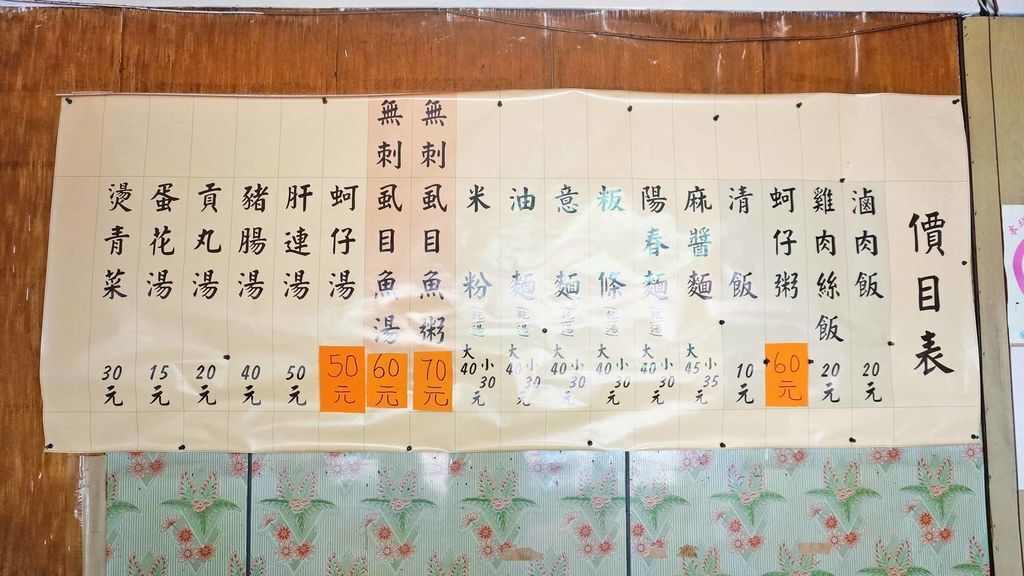 價目表
滷肉飯 20元
雞肉絲飯 20元
蚵仔粥 60元
清飯 10元
麻醬麵 大45 小35元
陽春麵 乾湯 大40 小30元
粄條 乾湯 大40 小30元
意麵 乾湯 大40 小30元
油麵 乾湯 大40 小30元
米粉 乾湯 大40 小30元
無刺虱目魚粥 70元
無刺虱目魚湯 60元
蚵仔湯 50元
肝連湯 50元
豬腸湯 40元
貢丸湯 20元
蛋花湯 15元
燙青菜 30元